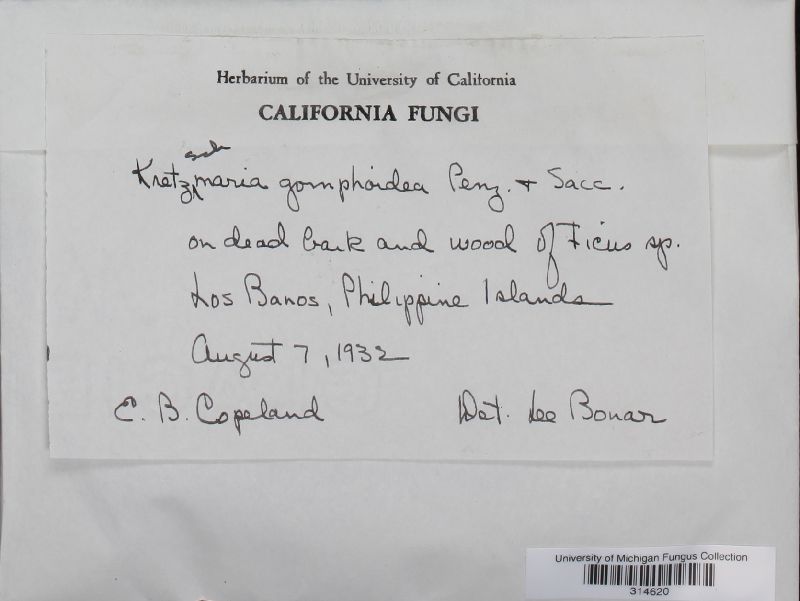 Herbarium of the University of California
CALIFORNIA FUNGI
Kretzschmaria gomphoidea Penz. + Sacc.
on dead bark and wood of Ficus sp.
Los Banos, Philippine Islands
August 7, 1932
E. B. Copeland Det. Lee Bonar
University of Michigan Fungus Collection
314620